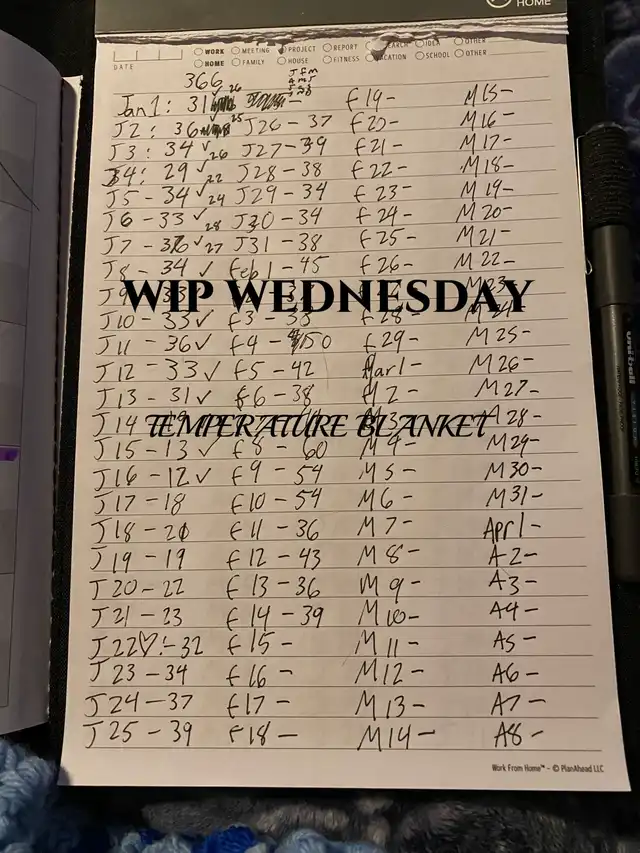 HOME
DATE
WORK MEETING PROJECT REPORT IDEA OTHER
HOME FAMILY HOUSE FITNESS SCHOOL OTHER
366
Jan1: 31 ✓ 26 F19- M15-
J2: 36 25 J26-37 F20- M16-
J3: 34 ✓ 26 J27-39 F21- M17-
J4: 29 ✓ 22 J28-38 F22- M18-
J5-34 ✓ 24 J29-34 F23- M19-
J6-33 ✓ 28 J30-34 F24- M20-
J7-36 ✓ 27 J31-38 F25- M21-
J8-34 ✓ Feb1-45 F26- M22-
WIP WEDNESDAY
J10-33 ✓ F3-33 F28-
J11-36 ✓ F4-50 F29- M25-
J12-33 ✓ F5-42 Mar1- M26-
J13-31 ✓ F6-38 M2- M27-
J14 M3- 28-
TEMPERATURE BLANKET
J15-13 ✓ F8-60 M4- M29-
J16-12 ✓ F9-54 M5- M30-
J17-18 F10-54 M6- M31-
J18-20 F11-36 M7- Apr1-
J19-19 F12-43 M8- A2-
J20-22 F13-36 M9- A3-
J21-23 F14-39 M10- A4-
J22♡!-32 F15- M11- A5-
J23-34 F16- M12- A6-
J24-37 F17- M13- A7-
J25-39 F18- M14- A8-
Work From Home™ - © PlanAhead LLC